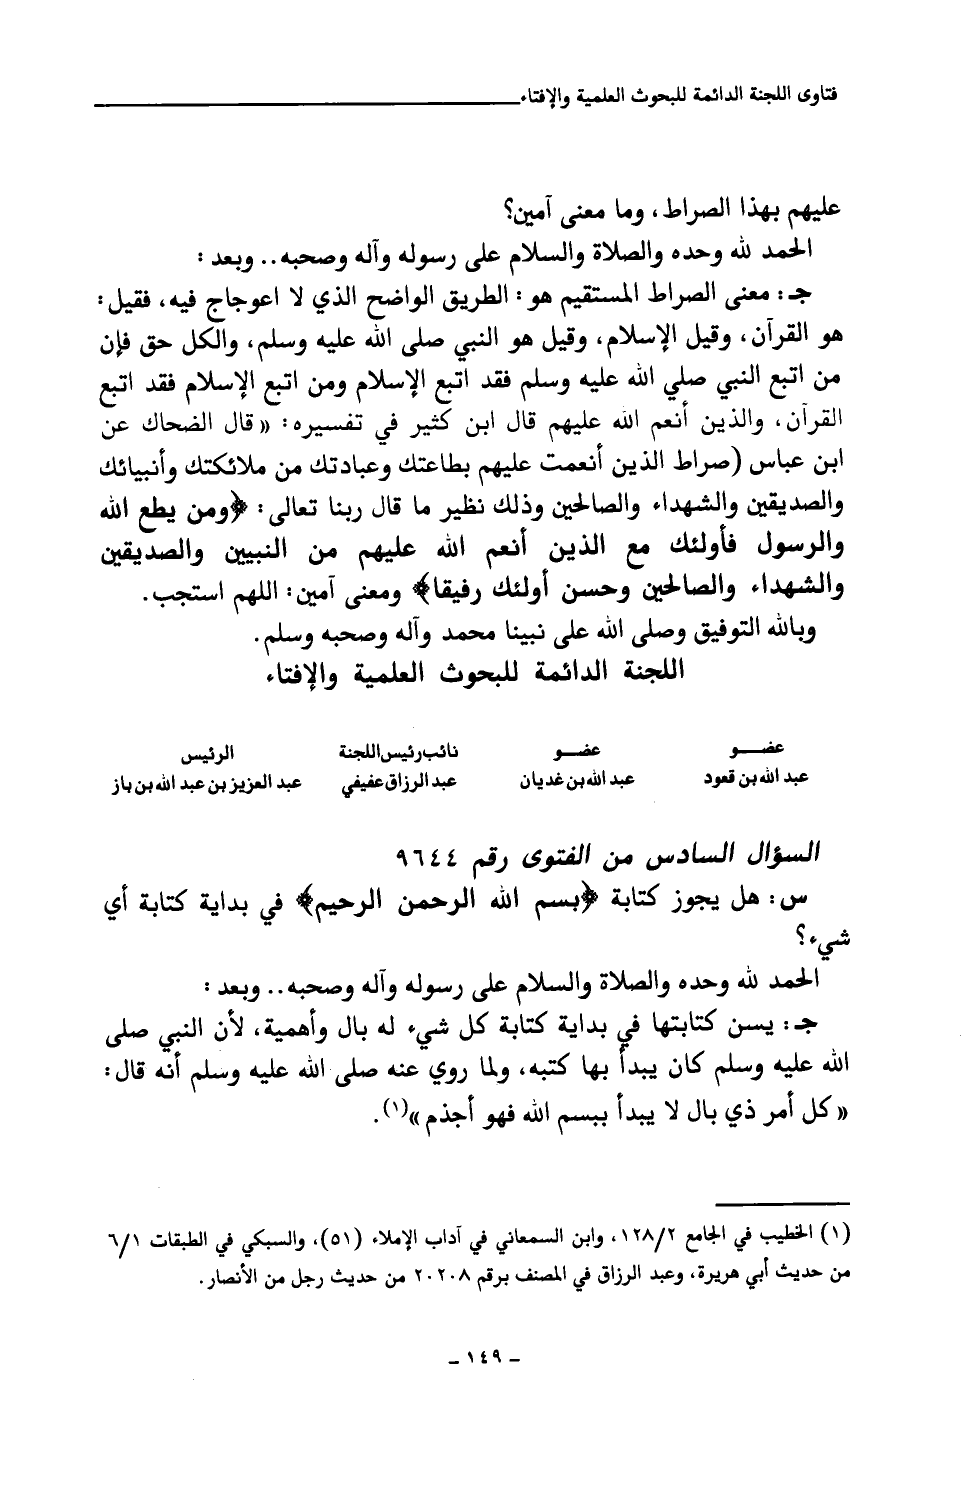 فتاوى اللجنة الدائمة للبحوث العلمية والإفتاء
عليهم بهذا الصراط، وما معنى آمين؟
الحمد لله وحده والصلاة والسلام على رسوله وآله وصحبه.. وبعد:
جـ: معنى الصراط المستقيم هو: الطريق الواضح الذي لا اعوجاج فيه، فقيل:
هو القرآن، وقيل الإسلام، وقيل هو النبي صلى الله عليه وسلم، والكل حق فإن
من اتبع النبي صلي الله عليه وسلم فقد اتبع الإسلام ومن اتبع الإسلام فقد اتبع
القرآن، والذين أنعم الله عليهم قال ابن كثير في تفسيره: «قال الضحاك عن
ابن عباس (صراط الذين أنعمت عليهم بطاعتك وعبادتك من ملائكتك وأنبيائك
والصديقين والشهداء والصالحين وذلك نظير ما قال ربنا تعالى: ﴿ومن يطع الله
والرسول فأولئك مع الذين أنعم الله عليهم من النبيين والصديقين
والشهداء والصالحين وحسن أولئك رفيقا﴾ ومعنى آمين: اللهم استجب.
وبالله التوفيق وصلى الله على نبينا محمد وآله وصحبه وسلم.
اللجنة الدائمة للبحوث العلمية والإفتاء
عضـــو عضـــو نائب رئيس اللجنة الرئيس
عبد الله بن قعود عبد الله بن غديان عبد الرزاق عفيفي عبد العزيز بن عبد الله بن باز
السؤال السادس من الفتوى رقم ٩٦٤٤
س: هل يجوز كتابة ﴿بسم الله الرحمن الرحيم﴾ في بداية كتابة أي
شيء؟
الحمد لله وحده والصلاة والسلام على رسوله وآله وصحبه.. وبعد:
جـ: يسن كتابتها في بداية كتابة كل شيء له بال وأهمية، لأن النبي صلى
الله عليه وسلم كان يبدأ بها كتبه، ولما روي عنه صلى الله عليه وسلم أنه قال:
«كل أمر ذي بال لا يبدأ ببسم الله فهو أجذم»(١).
(١) الخطيب في الجامع ١٢٨/٢، وابن السمعاني في آداب الإملاء (٥١)، والسبكي في الطبقات ٦/١
من حديث أبي هريرة، وعبد الرزاق في المصنف برقم ٢٠٢٠٨ من حديث رجل من الأنصار.
- ١٤٩ -